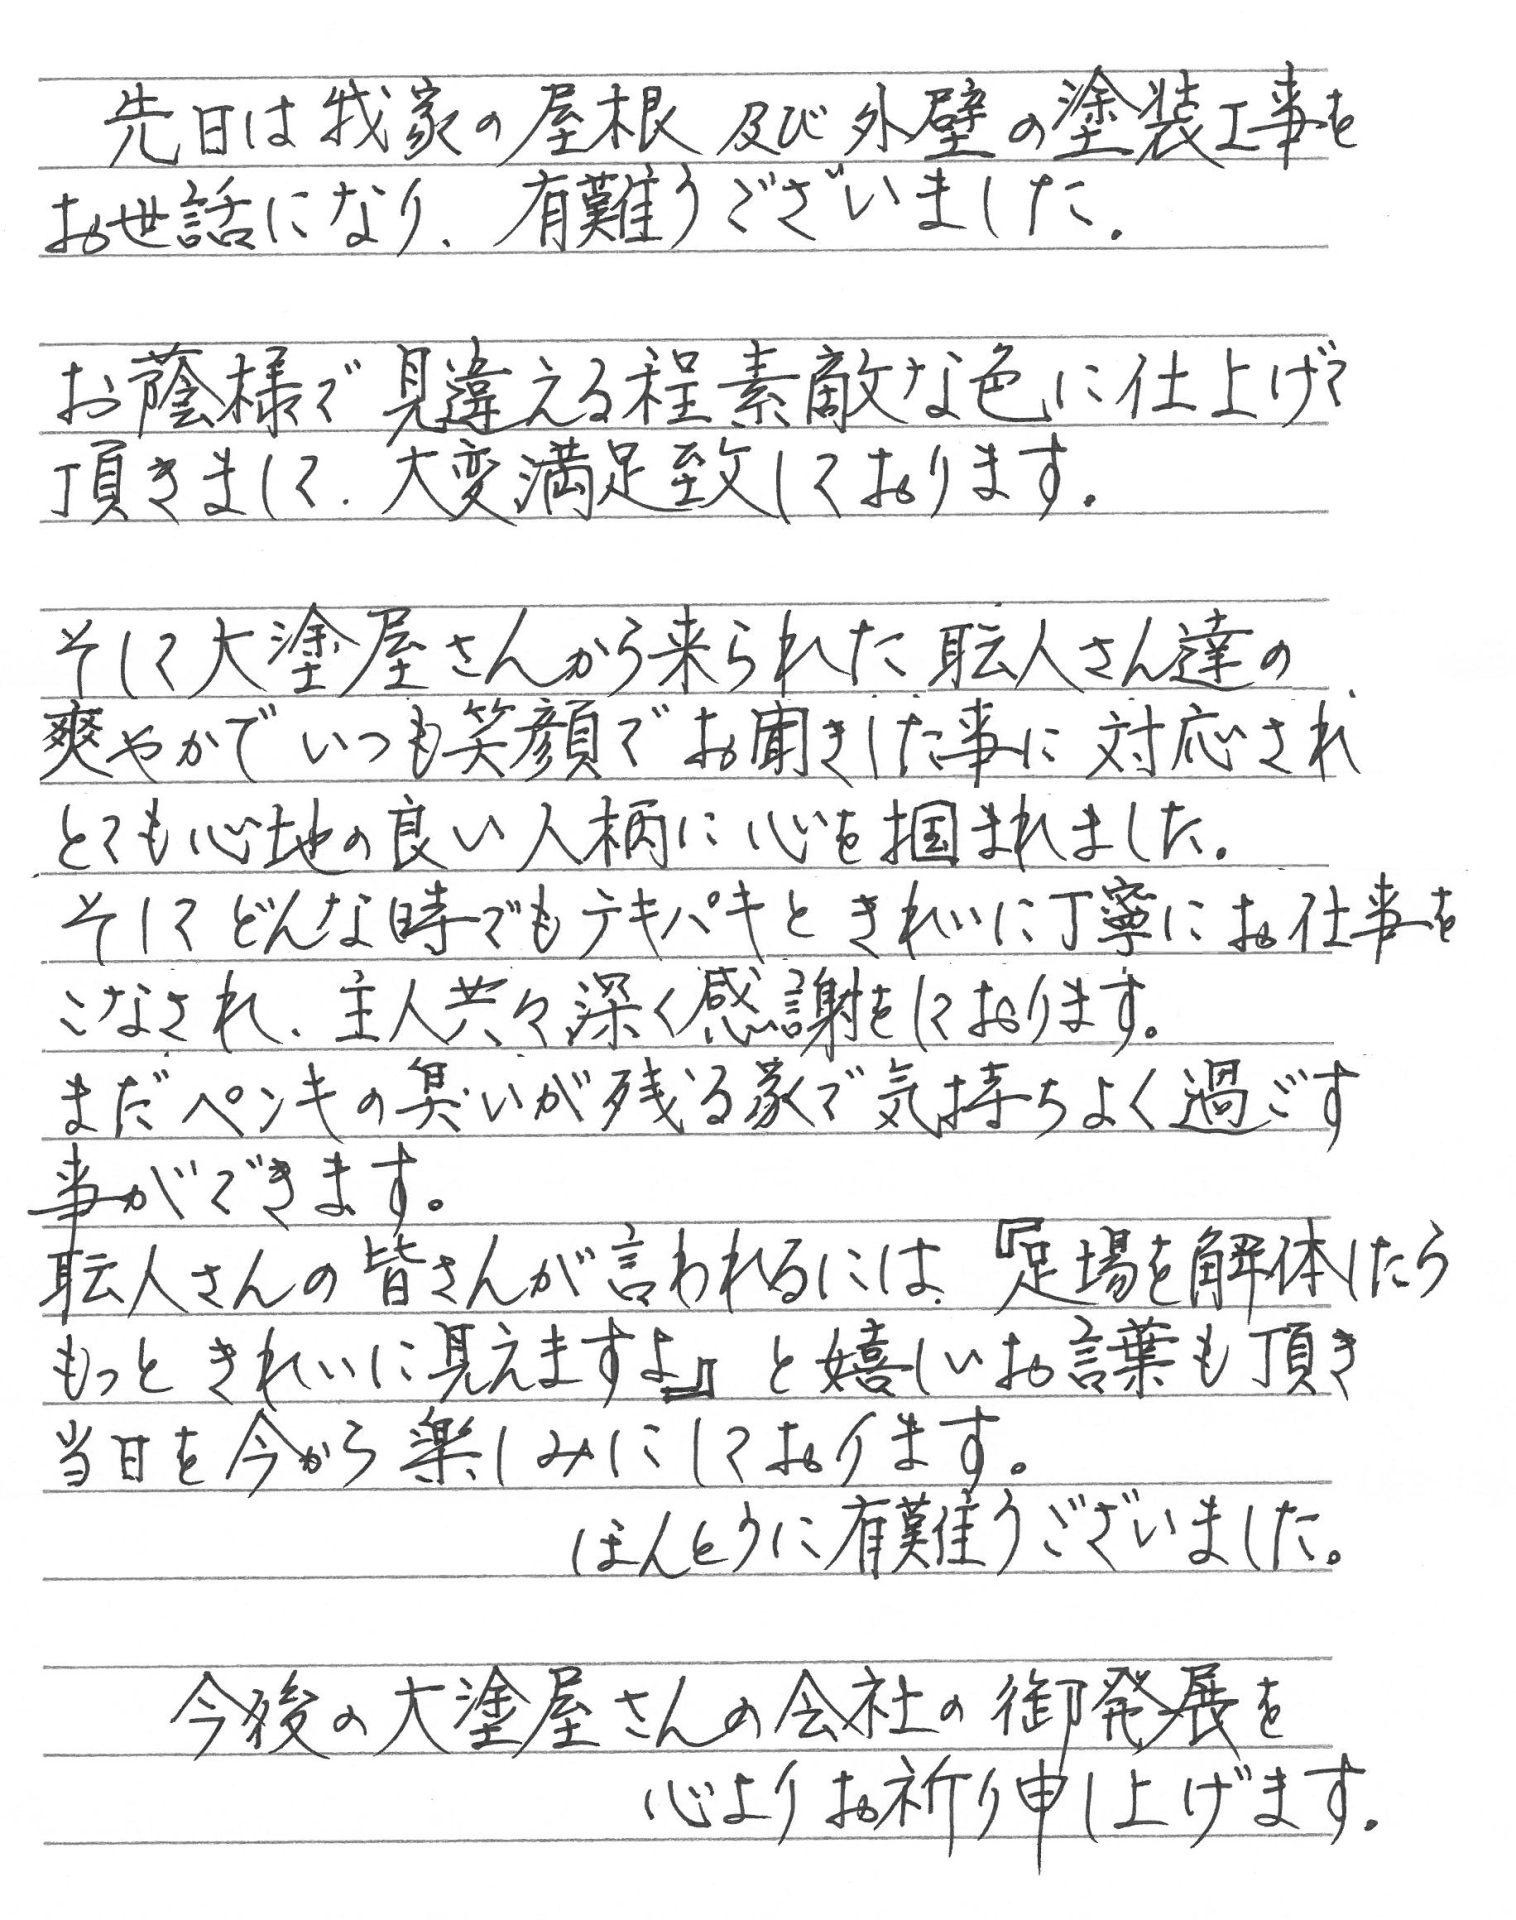 先日は我家の屋根及び外壁の塗装工事を
お世話になり、有難うございました。
お蔭様で見違える程素敵な色に仕上げて
頂きまして、大変満足致しております。
そして大塗屋さんから来られた職人さん達の
爽やかでいつも笑顔でお聞きした事に対応され
とても心地の良い人柄に心を掴まれました。
そしてどんな時でもテキパキときれいに丁寧にお仕事を
こなされ、主人共々深く感謝をしております。
まだペンキの臭いが残る家で気持ちよく過ごす
事ができます。
職人さんの皆さんが言われるには、『足場を解体したら
もっときれいに見えますよ』と嬉しいお言葉も頂き
当日を今から楽しみにしております。
ほんとうに有難うございました。
今後の大塗屋さんの会社の御発展を
心よりお祈り申し上げます。